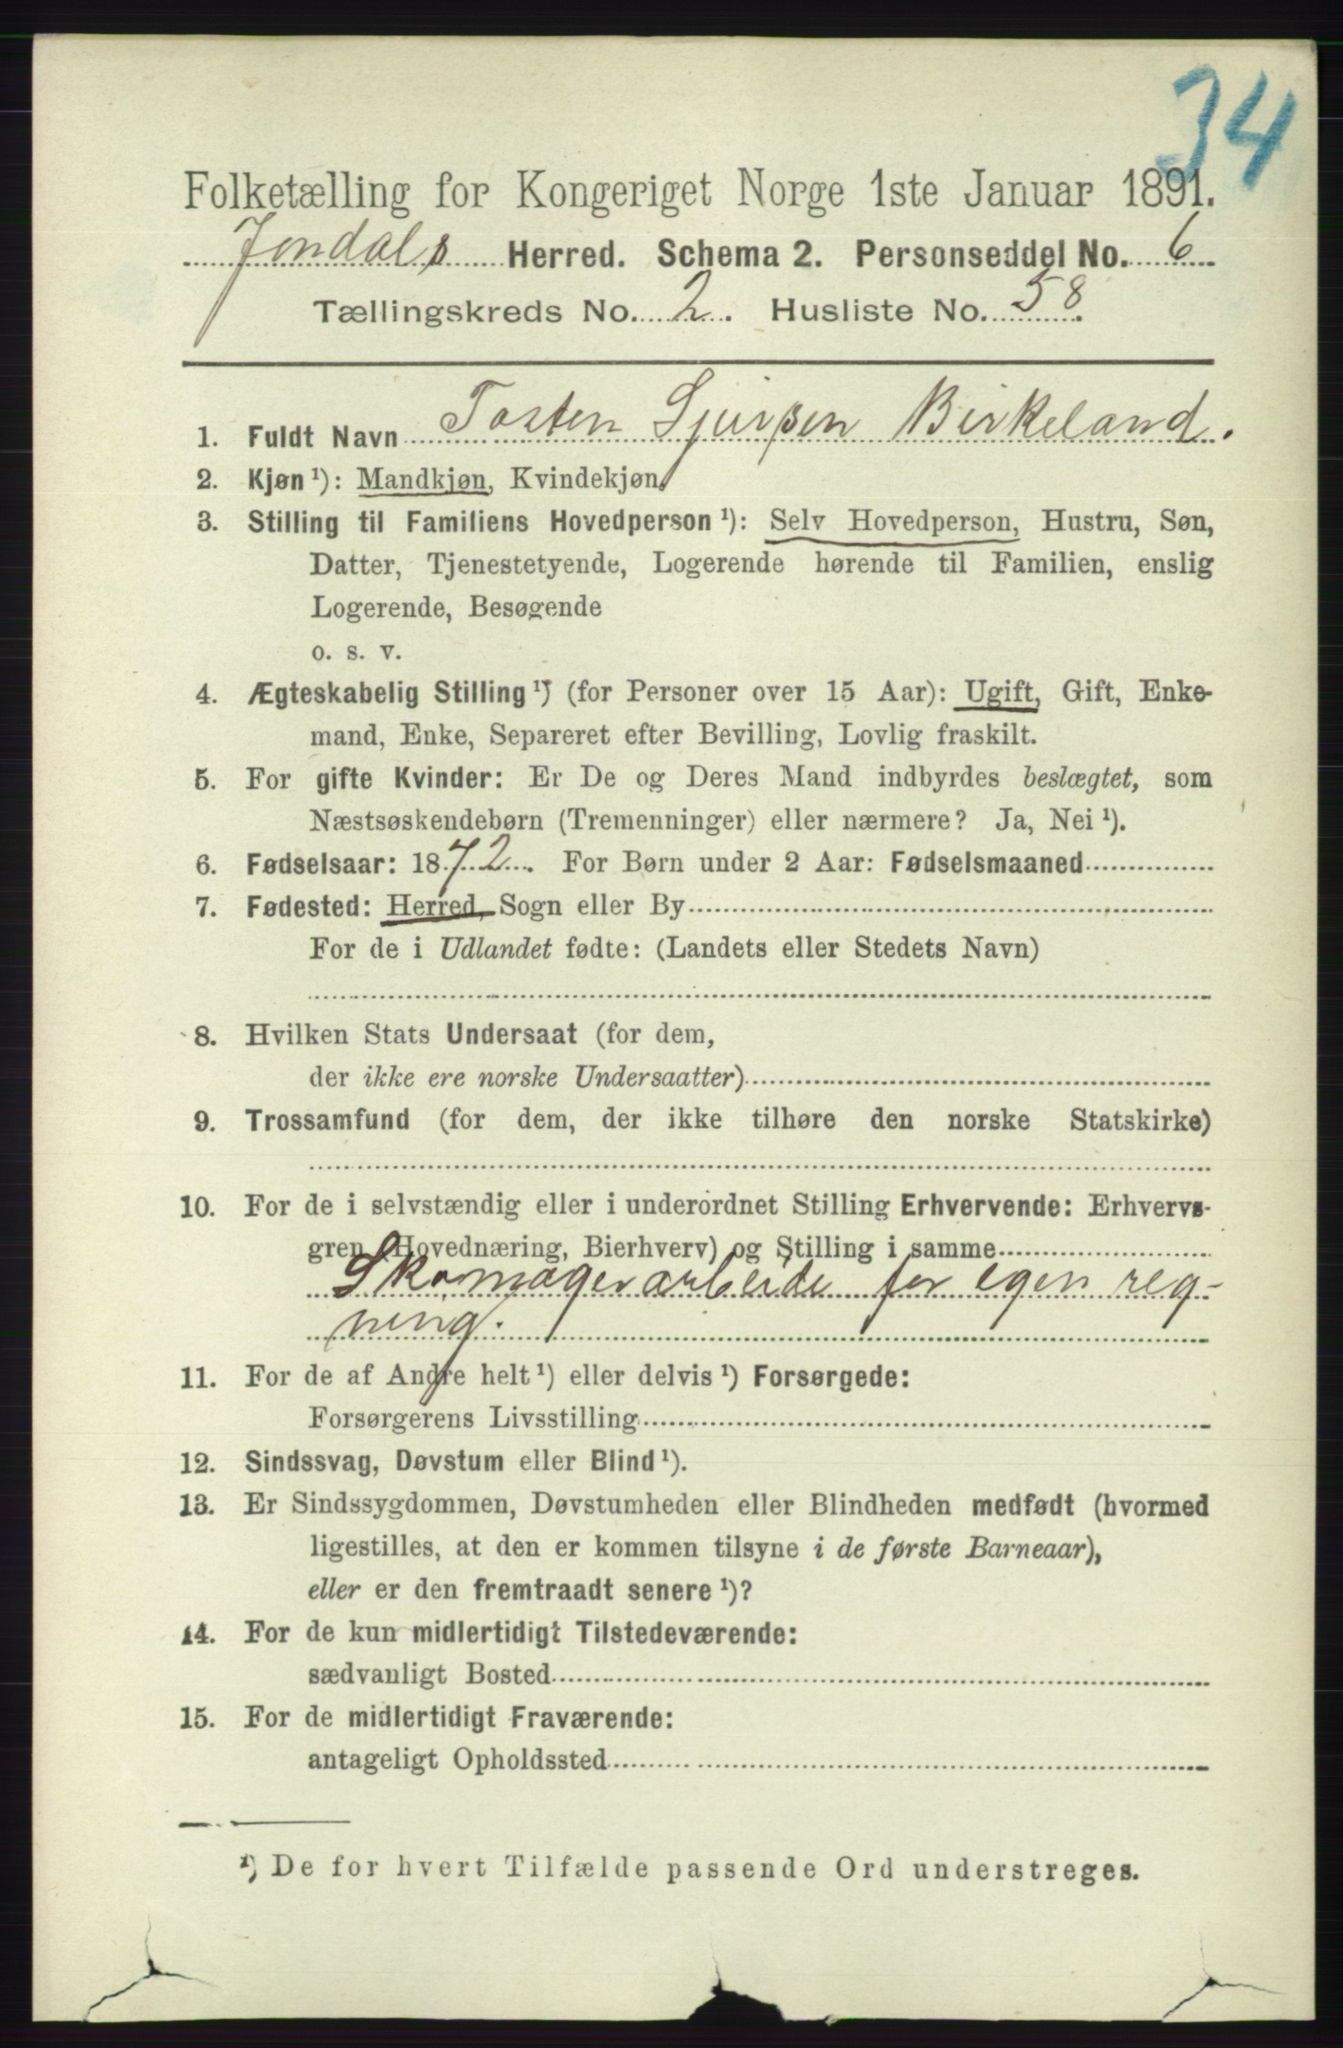 34
Folketælling for Kongeriget Norge 1ste Januar 1891.
Jondals Herred. Schema 2. Personseddel No. 6
Tællingskreds No. 2. Husliste No. 58.
1. Fuldt Navn Tosten Sjursen Birkeland.
2. Kjøn¹): Mandkjøn, Kvindekjøn.
3. Stilling til Familiens Hovedperson¹): Selv Hovedperson, Hustru, Søn,
Datter, Tjenestetyende, Logerende hørende til Familien, enslig
Logerende, Besøgende
o. s. v.
4. Ægteskabelig Stilling¹) (for Personer over 15 Aar): Ugift, Gift, Enke-
mand, Enke, Separeret efter Bevilling, Lovlig fraskilt.
5. For gifte Kvinder: Er De og Deres Mand indbyrdes beslægtet, som
Næstsøskendebørn (Tremenninger) eller nærmere? Ja, Nei¹).
6. Fødselsaar: 1872. For Børn under 2 Aar: Fødselsmaaned
7. Fødested: Herred, Sogn eller By
For de i Udlandet fødte: (Landets eller Stedets Navn)
8. Hvilken Stats Undersaat (for dem,
der ikke ere norske Undersaatter)
9. Trossamfund (for dem, der ikke tilhøre den norske Statskirke)
10. For de i selvstændig eller i underordnet Stilling Erhvervende: Erhvervs-
gren (Hovednæring, Bierhverv) og Stilling i samme
Skomagerarbeide for egen reg-
ning.
11. For de af Andre helt¹) eller delvis¹) Forsørgede:
Forsørgerens Livsstilling
12. Sindssvag, Døvstum eller Blind¹).
13. Er Sindssygdommen, Døvstumheden eller Blindheden medfødt (hvormed
ligestilles, at den er kommen tilsyne i de første Barneaar),
eller er den fremtraadt senere¹)?
14. For de kun midlertidigt Tilstedeværende:
sædvanligt Bosted
15. For de midlertidigt Fraværende:
antageligt Opholdssted
¹) De for hvert Tilfælde passende Ord understreges.